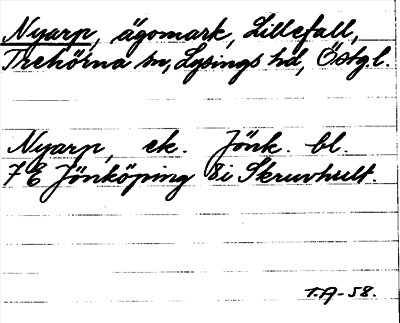 Nyarp, ägomark, Lillefall,
Trehörna sn, Lysings hd, Östg.l.
Nyarp, ek. Jönk. bl.
7 E Jönköping 8i Skruvhult.
T.A-58.